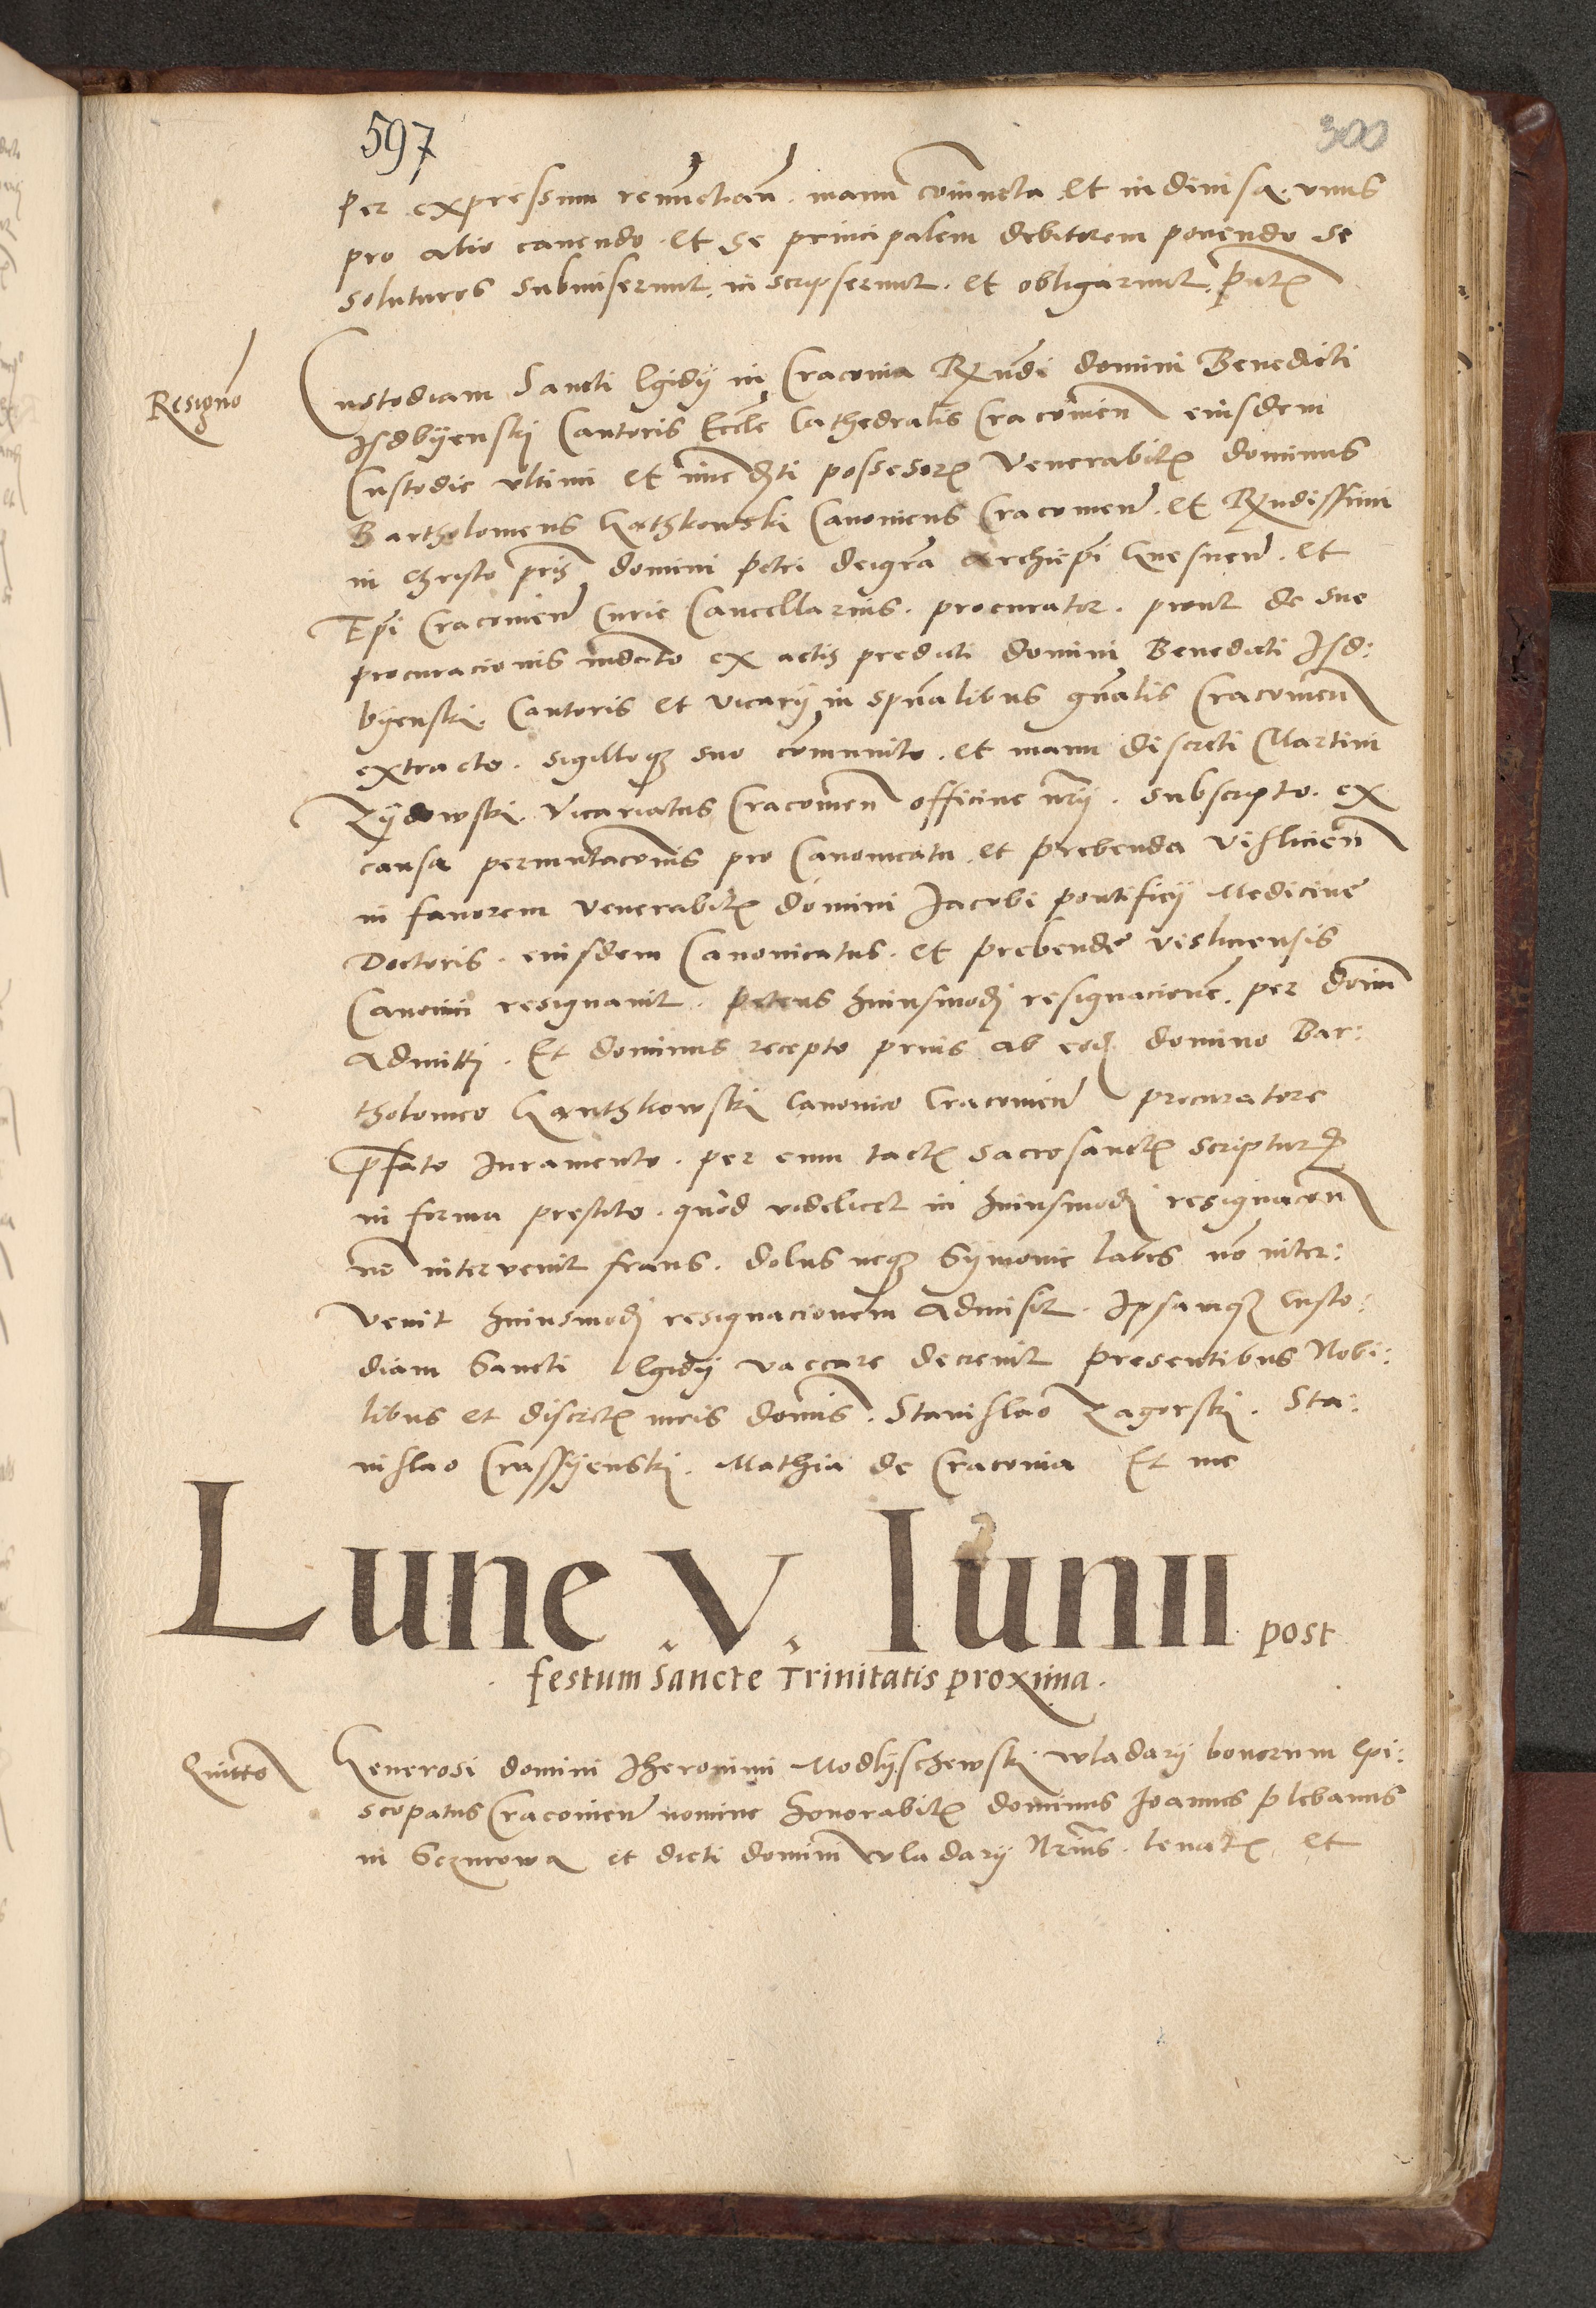 597
300
per expressum renunctiaũ. manu coniuncta et indiuisa. vnus
pro alio cauendo. et se principalem debitorem ponendo se
soluturos submiserunt, inscripserunt. et obligarunt.
Resigno
Custodiam Sancti Egidij in Cracouia Rṽndi domini Benedicti
Isdbyenskj Cantoris Eccle Cathedralis Cracouien eiusdem
Custodie vltimi et imedti possesoris Venerabilis dominus
Bartholomeus Ganthkowskj Canonicus Cracouien. et Rṽndissimi
in christo pris domini Petri deigra archiepi Gnesnen. et
Epi Cracouien Curie Cancellarius. procurator. prout de sue
procuracionis mdato ex actis predicti domini Benedicti Isd:
byenskj. Cantoris et vicarij in spũalibus gñalis Cracouien
extracto. sigilloq suo cõmunito. et manu discreti Martini
Zydowskj. Vicariatus Cracouien officine nrij. subscripto. ex
causa permutacionis pro Canonicatu et prebenda Visliciен
in fauorem venerabilis domini Jacobi pontificij Medicine
Doctoris. eiusdem Canonicatus. et prebende visliciensis
Canonici resignauit. petens huiusmodj resignacione. per domũ
admittj. Et dominus recepto prius ab eod domino Bar:
tholomeo Ganthkowskj Canonico Cracouien procuratore
pfato Iuramento. per eum tactis sacrosanctis scripturis
in forma prestito. quod videlicet in huiusmodj resignacion
no interuenit fraus. dolus neq Symonie labes no inter:
venit huiusmodj resignacionem admisit. Ipsamq Custo:
diam Sancti Egidij vaccare decreuit presentibus Nobi:
libus et discretis viris domis. Stanislao Zagorskj. Sta:
nislao Crassyenskj. Mathia de Cracouia Et me
Lune .V. Iunii post
festum Sancte Trinitatis proxima.
Quitto
Generosi domini Iheronimi Modlyschewskj wladarij bonorum Epi:
scopatus Cracouien nomine honorabilis dominus Ioannes plebanus
in et dicti domini wladarij et